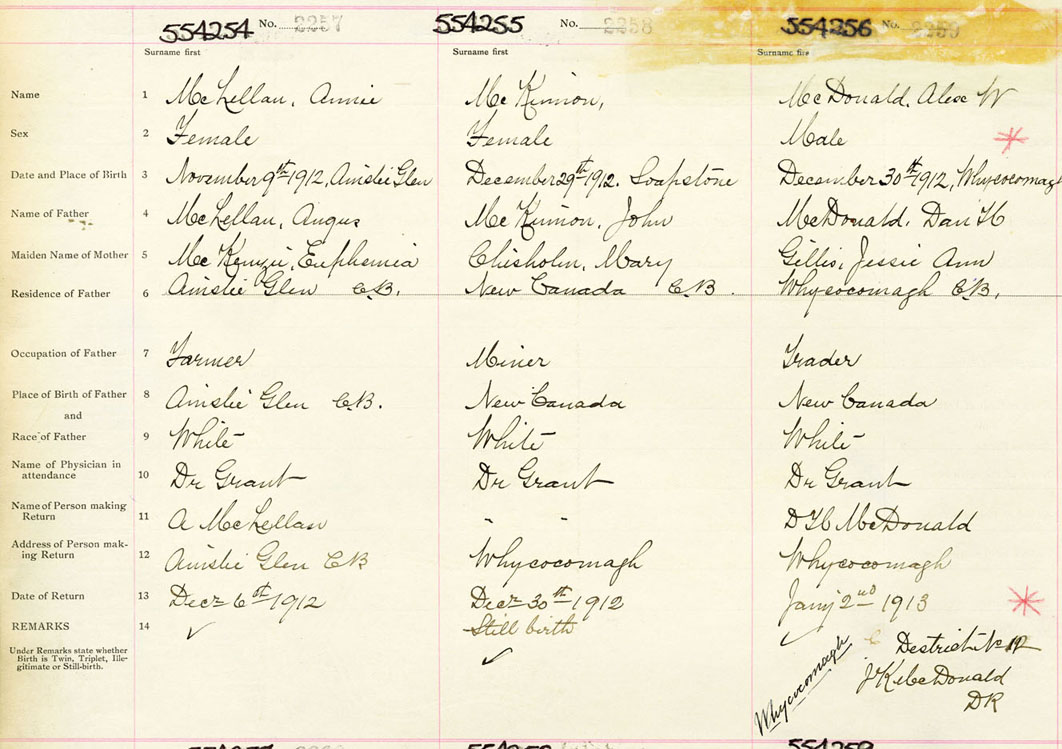 554254 No. 2257 554255 No. 2258 554256 No. 2259
Surname first Surname first Surname firs
Name 1 McLellan, Annie McKinnon, McDonald, Alex W
Sex 2 Female Female Male
Date and Place of Birth 3 November 9th 1912, Ainslie Glen December 29th 1912. Soapstone December 30th 1912, Whycocomagh
Name of Father 4 McLellan, Angus McKinnon, John McDonald, Dan H
Maiden Name of Mother 5 McKenzie, Euphemia Chisholm, Mary Gillis, Jessie Ann
Residence of Father 6 Ainslie Glen C.B. New Canada C.B. Whycocomagh C.B.
Occupation of Father 7 Farmer Miner Trader
Place of Birth of Father 8 Ainslie Glen C.B. New Canada New Canada
and
Race of Father 9 White White White
Name of Physician in
attendance 10 Dr Grant Dr Grant Dr Grant
Name of Person making
Return 11 A McLellan " " D H McDonald
Address of Person mak-
ing Return 12 Ainslie Glen CB Whycocomagh Whycocomagh
Date of Return 13 Decr 6th 1912 Decr 30th 1912 Jany 2nd 1913
REMARKS 14 ✓ Still birth ✓
Under Remarks state whether
Birth is Twin, Triplet, Ille-
gitimate or Still-birth.
✓
Whycocomagh
Destrict No 12
McDonald
DR